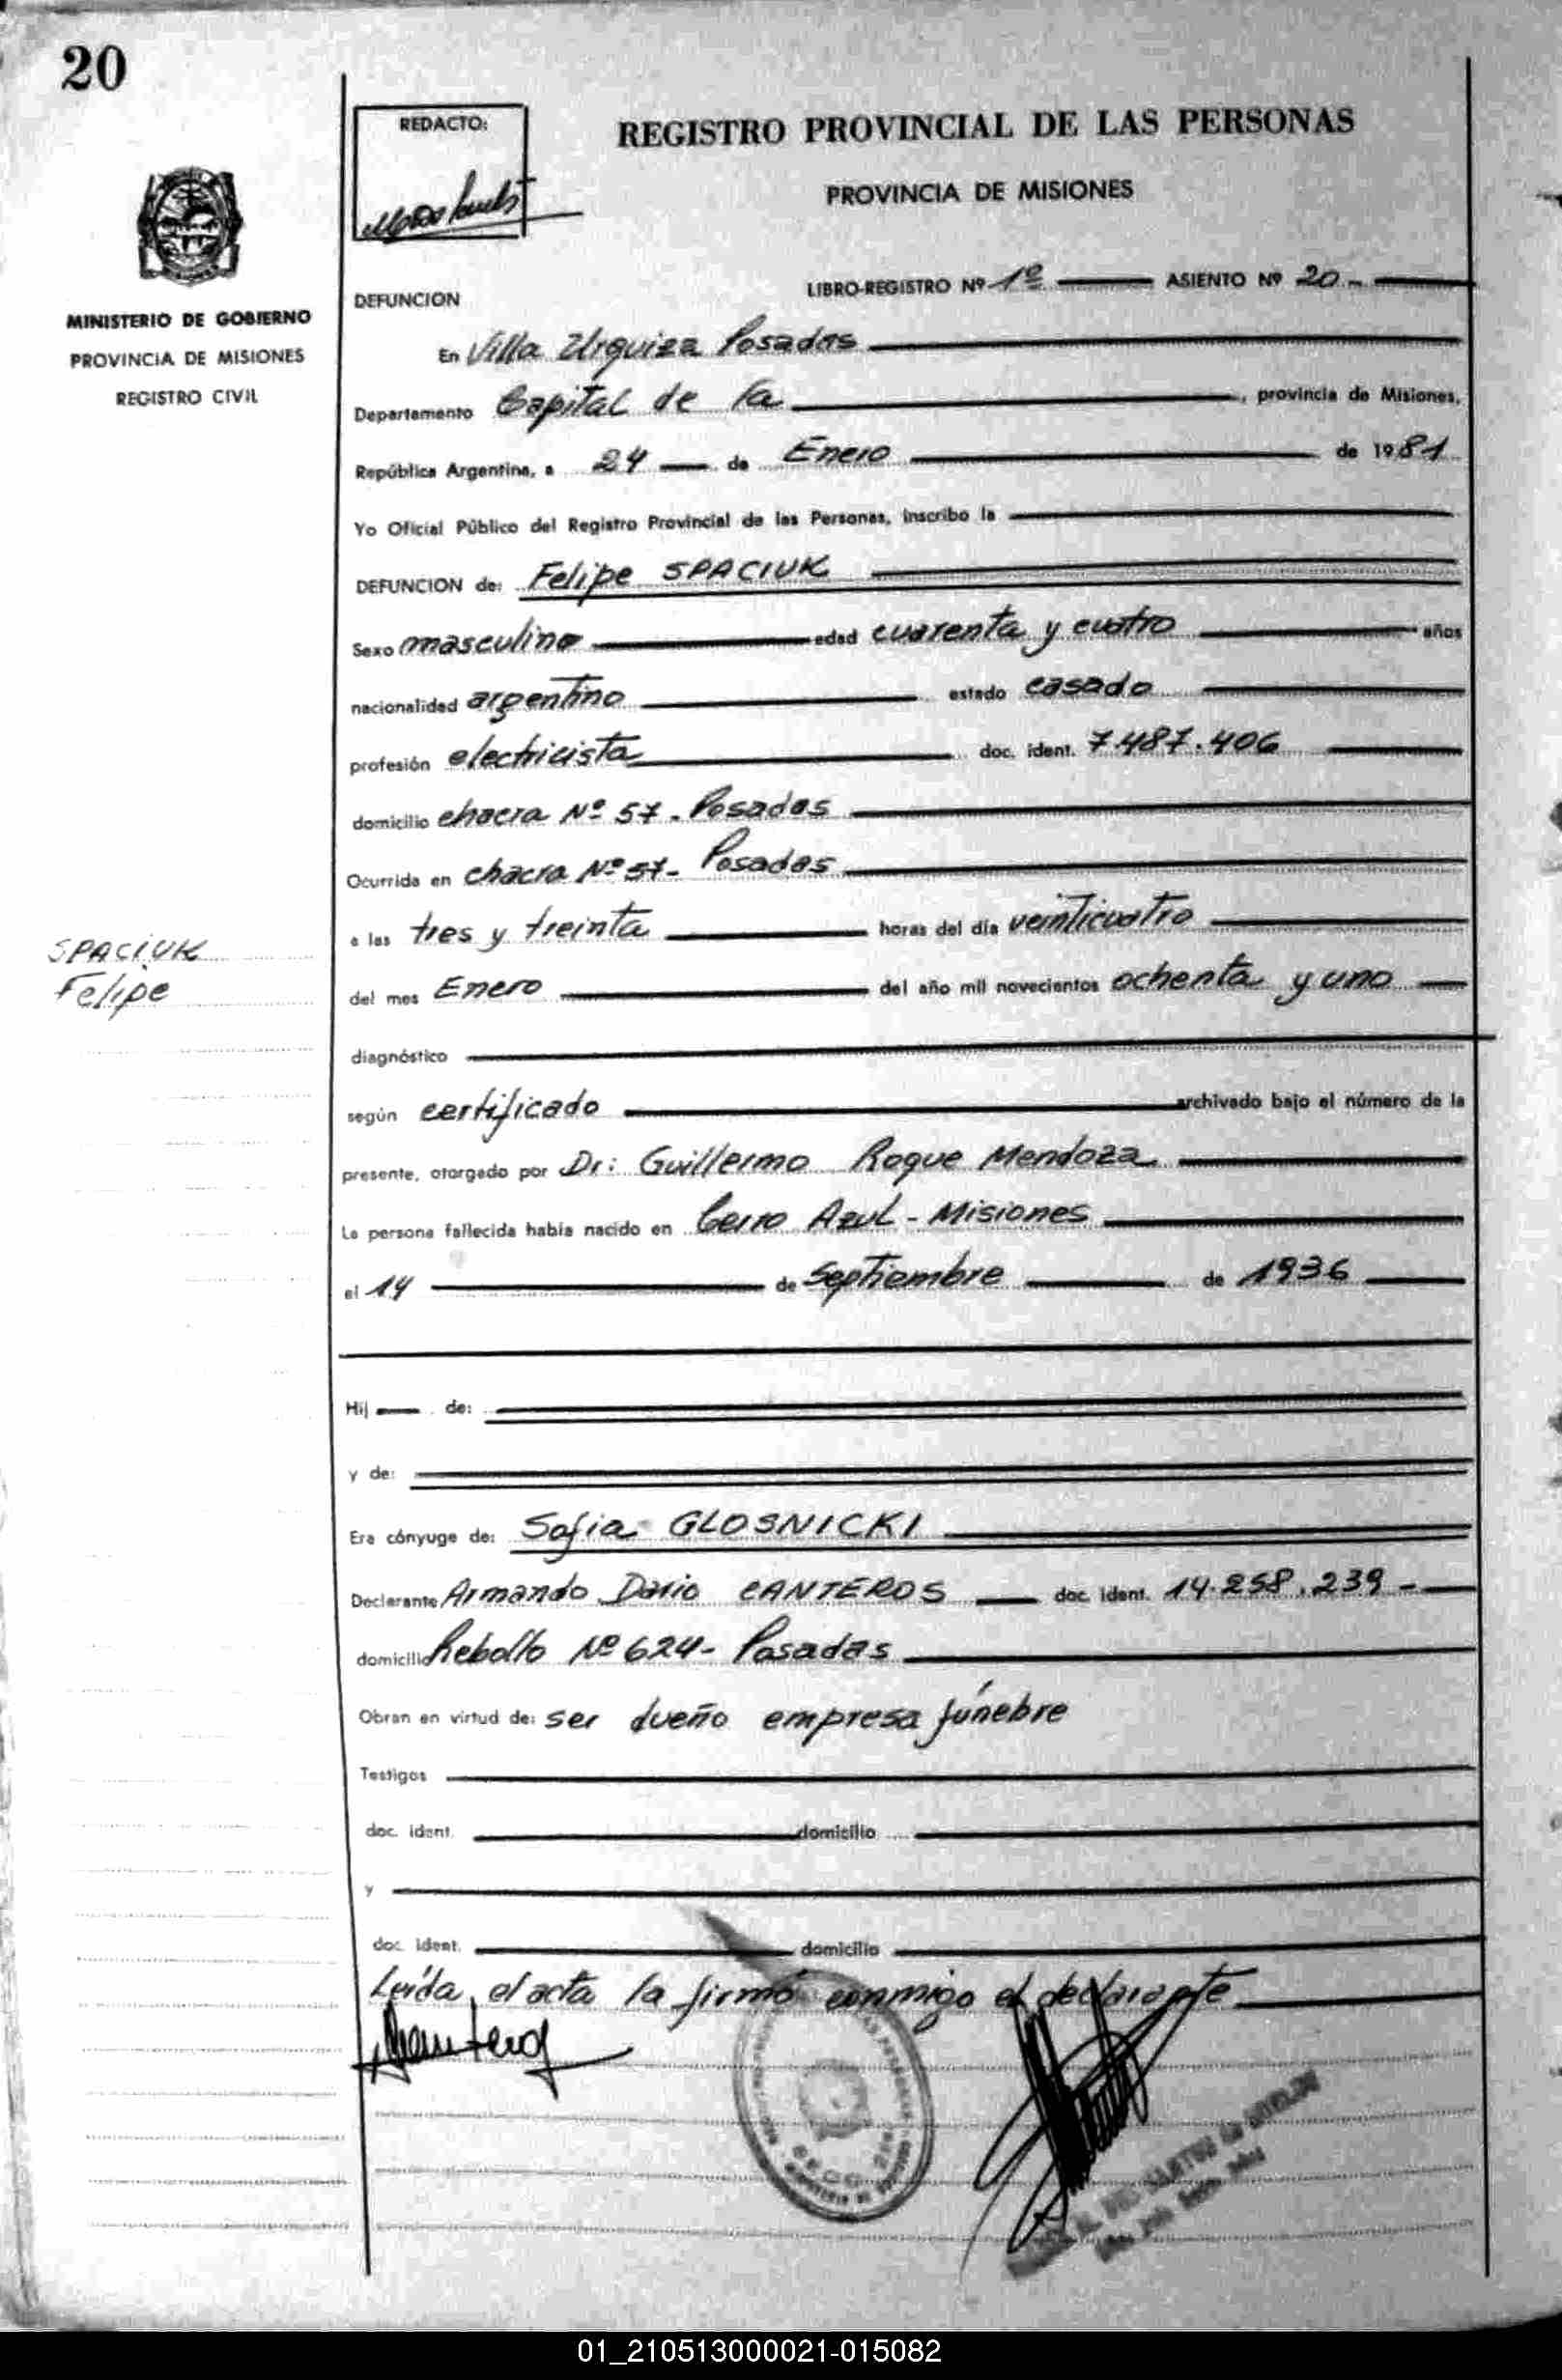 20
REDACTO:
REGISTRO PROVINCIAL DE LAS PERSONAS
PROVINCIA DE MISIONES
MINISTERIO DE GOBIERNO
PROVINCIA DE MISIONES
REGISTRO CIVIL
LIBRO-REGISTRO Nº 1º ASIENTO Nº 20 -
DEFUNCION
En Villa Urquiza Posadas
Departamento Capital de la , provincia de Misiones,
República Argentina, a 24 de Enero de 1981
Yo Oficial Público del Registro Provincial de las Personas, inscribo la
DEFUNCION de: Felipe SPACIUK
Sexo masculino edad cuarenta y cuatro años
nacionalidad argentino estado casado
profesión electricista doc. ident. 7.487.406
domicilio chacra Nº 57 - Posadas
Ocurrida en chacra Nº 57 - Posadas
a las tres y treinta horas del día veinticuatro
SPACIUK
Felipe
del mes Enero del año mil novecientos ochenta y uno
diagnóstico
según certificado archivado bajo el número de la
presente, otorgado por Dr: Guillermo Roque Mendoza
La persona fallecida había nacido en Cerro Azul - Misiones
el 14 de Septiembre de 1936
Hij de:
y de:
Era cónyuge de: Sofia GLOSNICKI
Declarante Armando Dario CANTEROS doc. ident. 14.258.239 -
domicilio Rebollo Nº 624 - Posadas
Obran en virtud de: ser dueño empresa fúnebre
Testigos
doc. ident. domicilio
y
doc. ident. domicilio
Leída el acta la firmó conmigo el declarante
01_210513000021-015082